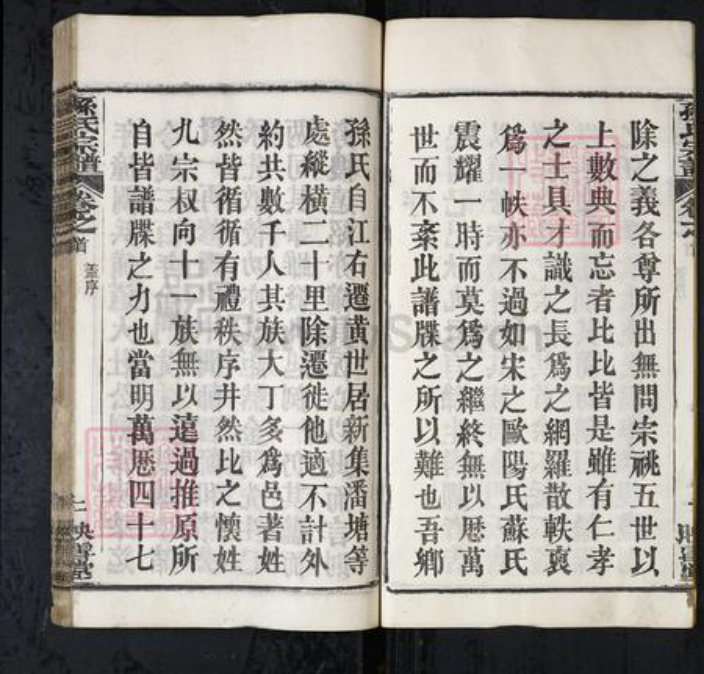 除之義各尊所出無問宗祧五世以
上數典而忘者比比皆是雖有仁孝
之士具才識之長爲之網羅散軼裒
爲一帙亦不過如宋之歐陽氏蘇氏
震耀一時而莫爲之繼終無以歷萬
世而不紊此譜牒之所以難也吾鄉
孫氏自江右遷黃世居新集潘塘等
處縱橫二十里除遷徙他適不計外
約共數千人其族大丁多爲邑著姓
然皆循循有禮秩序井然比之懷姓
九宗叔向十一族無以遠過推原所
自皆譜牒之力也當明萬歷四十七
孫氏宗譜
卷之首
蓋序
映雪堂